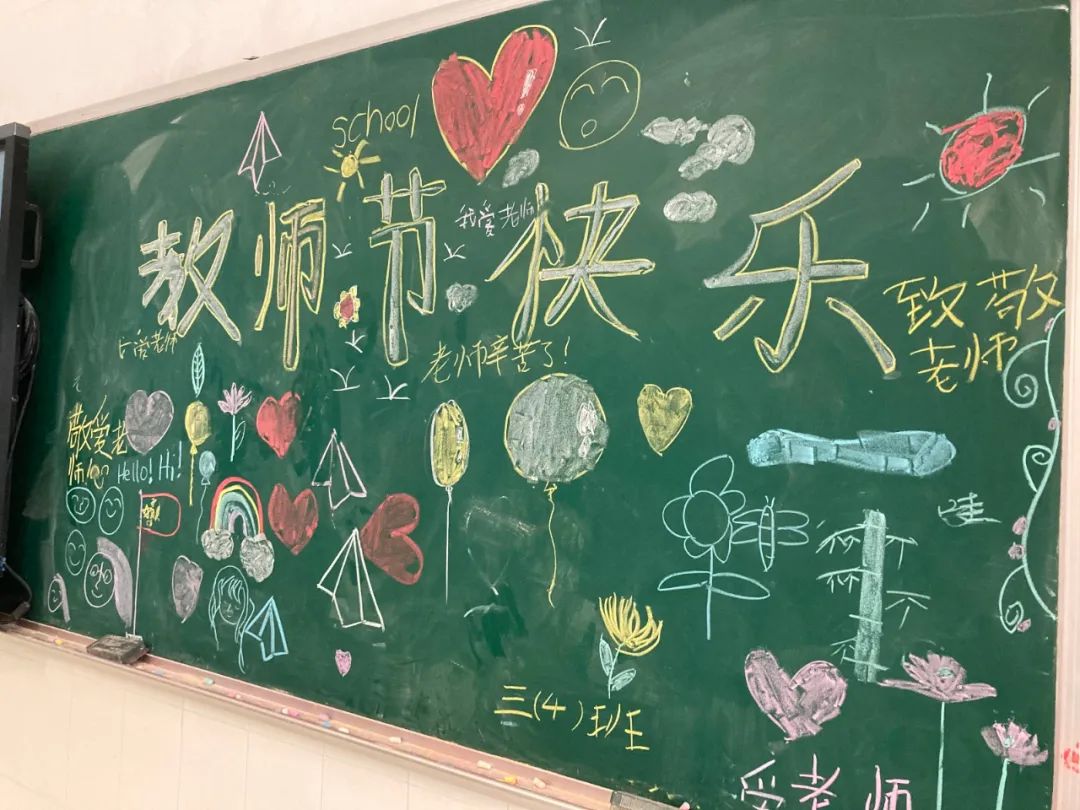 school
我爱老师
教师节快乐
致敬
老师
老师辛苦了!
敬爱老
师
Hello! Hi!
哇
三(4)班
爱老师